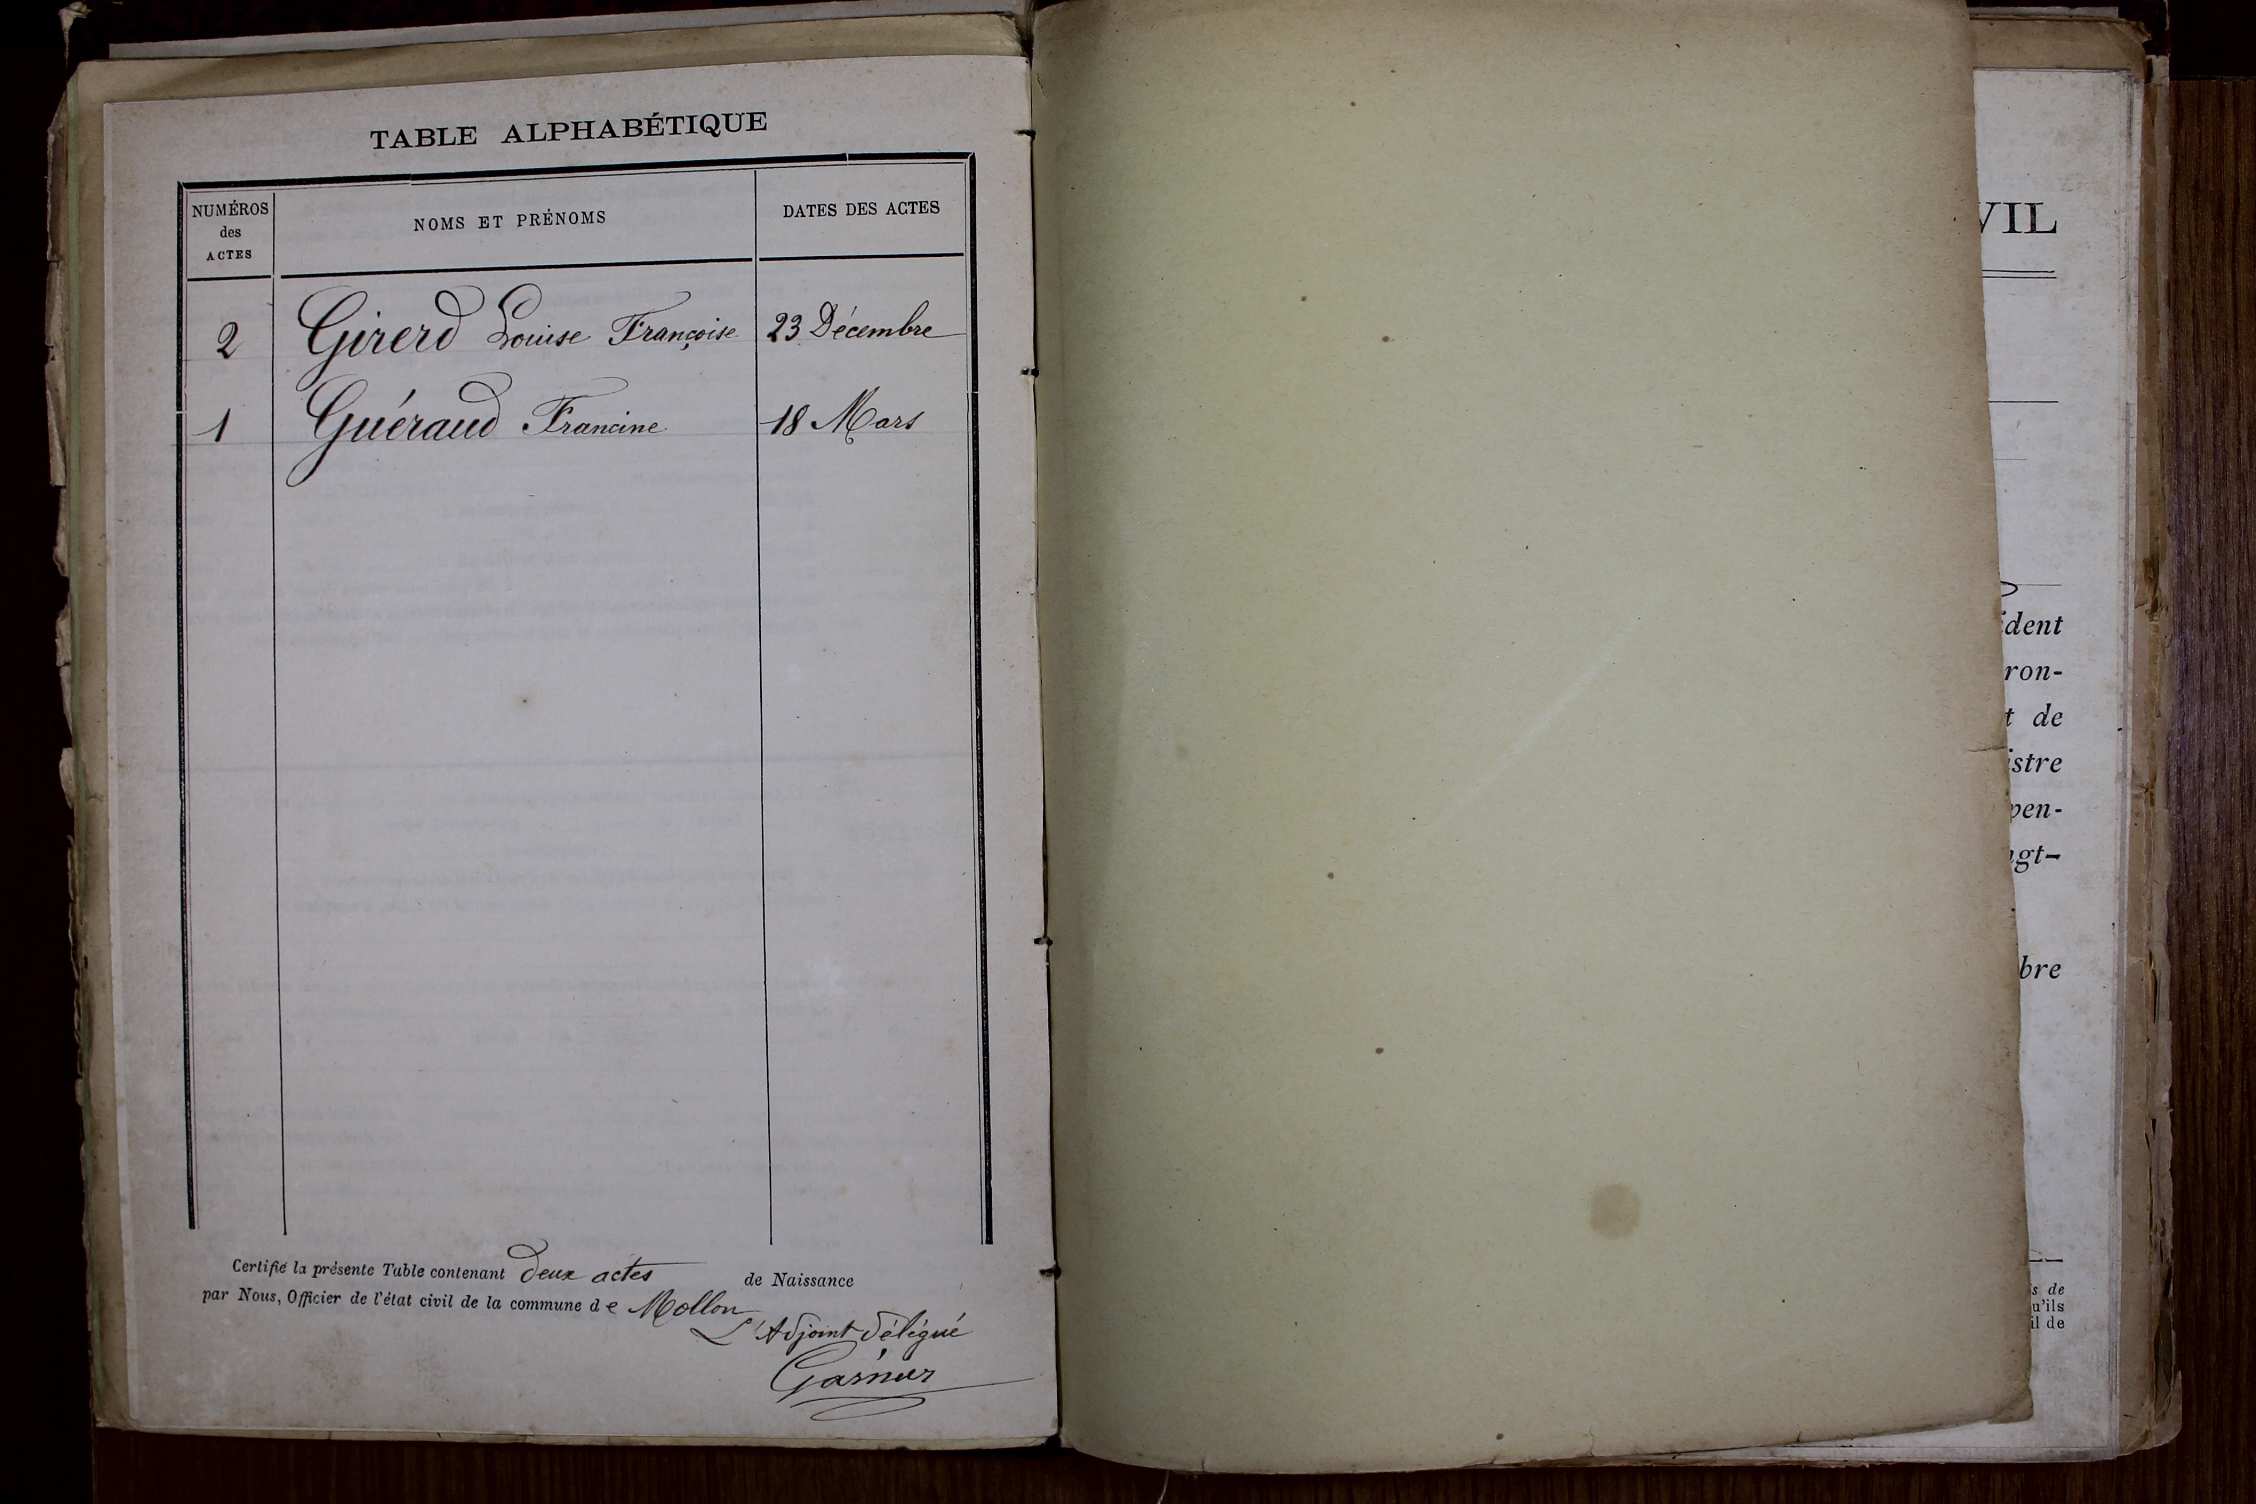 TABLE ALPHABÉTIQUE
NUMÉROS
des
ACTES
NOMS ET PRÉNOMS
DATES DES ACTES
2 Girerd Louise Françoise 23 Décembre
1 Guéraud Francine 18 Mars
Certifié la présente Table contenant deux actes de Naissance
par Nous, Officier de l'état civil de la commune de Mollon
L'Adjoint délégué
VIL
dent
ron-
t de
istre
pen-
ngt-
bre
s de
u'ils
il de